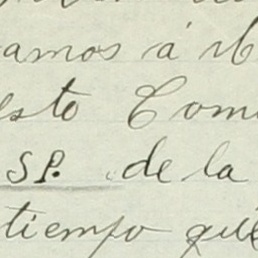 amos á
esto Com
SP. de la
tiempo que